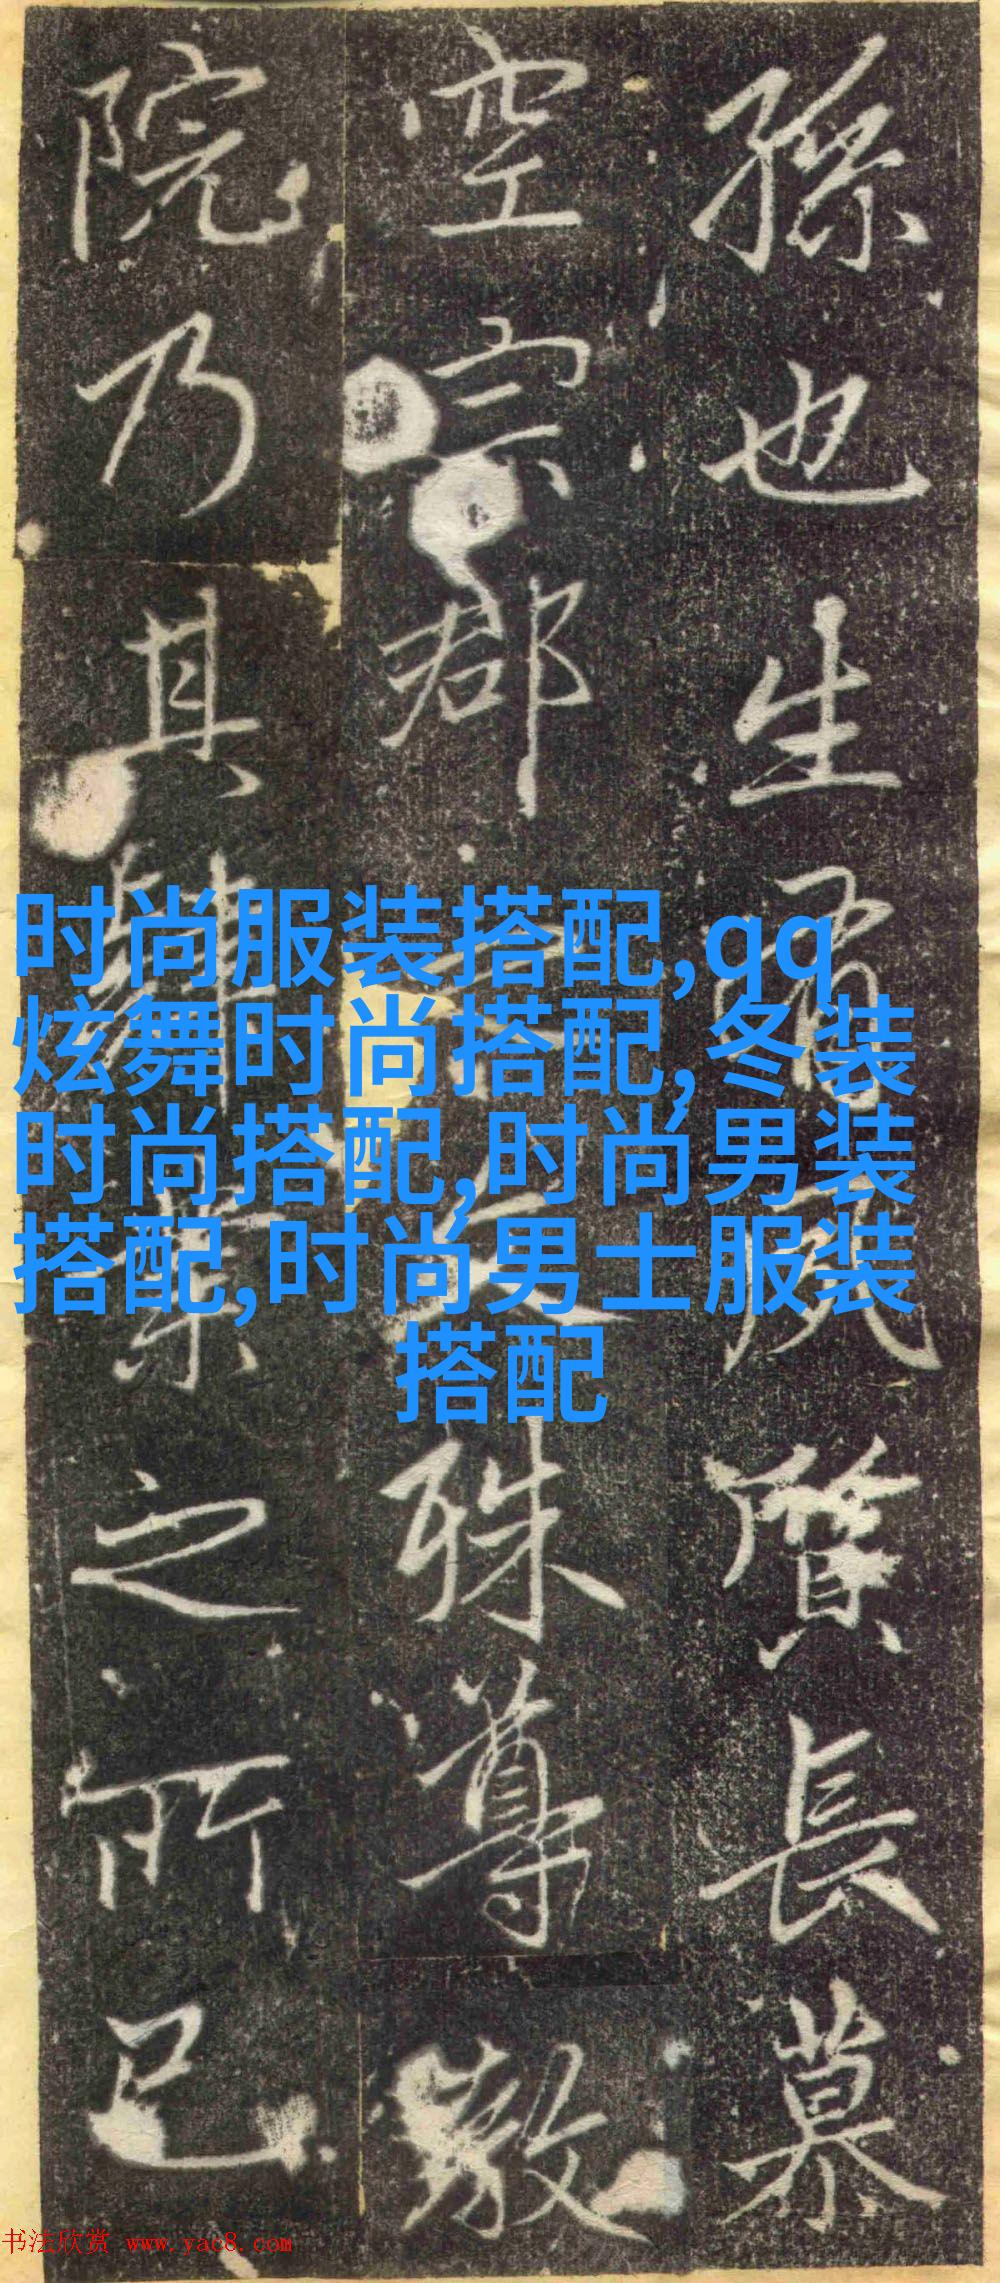 孫也生有風質長慕
空宗郡
殊尊敬
院乃其肄業之所已
时尚服装搭配,qq
炫舞时尚搭配,冬装
时尚搭配,时尚男装
搭配,时尚男士服装
搭配
书法欣赏 www.yac8.com